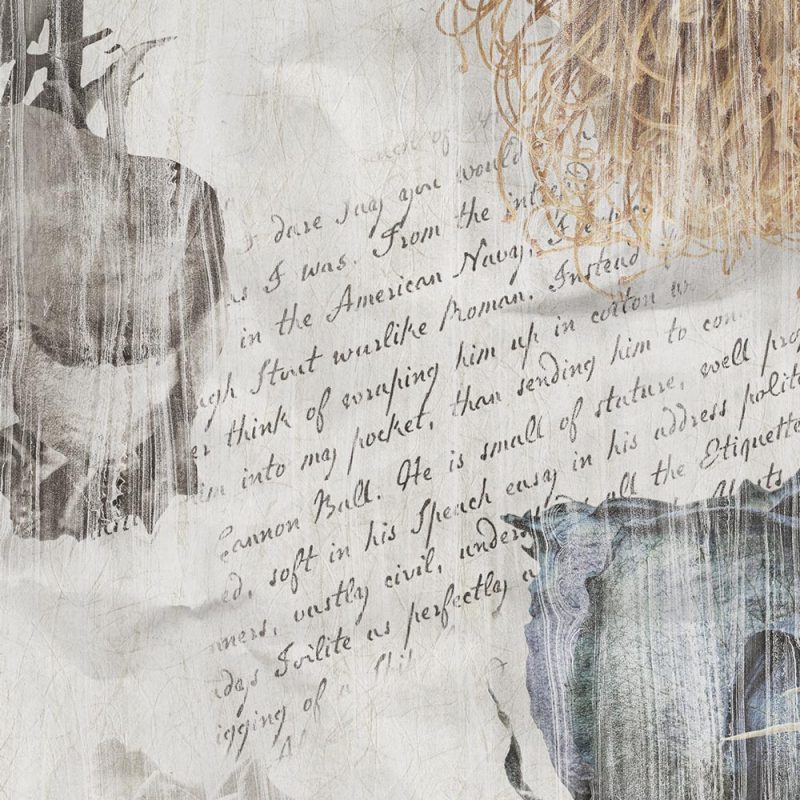 dare say you would
as I was. From the intre
in the American Navy, I
Stout warlike Roman. Instead
think of wraping him up in cotton w
him into my pocket, than sending him to con
Cannon Ball. He is small of stature, well pro
ed, soft in his Speach easy in his address polite
ners, vastly civil, unders all the Etiquette
days Ivilite as perfectly a
igging of a Shi